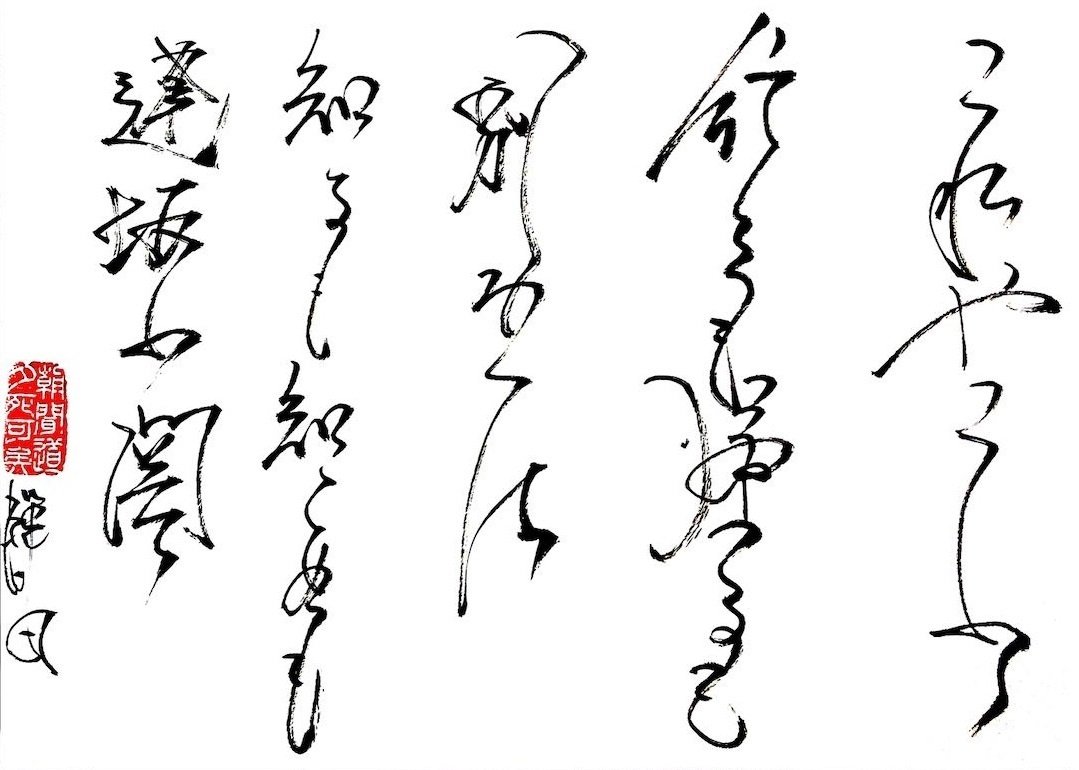 これやこの
も帰るも
別れては
知るも知らぬも
逢坂の関
朝聞道
夕死可矣